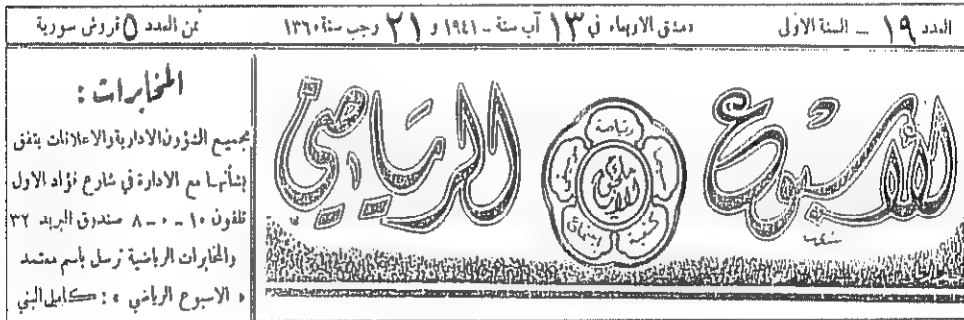 العدد ١٩ ـ السنة الاولى
دمشق الاربعاء في ١٣ آب سنة ـ ١٩٤١ و ٢١ رجب سنة ١٣٦٠
ثمن العدد ٥ قروش سورية
الأسبوع الرياضي
رياضة
كشفية
المخابرات :
جميع الشؤون الادارية والاعلانات يتفق
بشأنها مع الادارة في شارع فؤاد الاول
تلفون ١٠ ـ ٠ ـ ٨ صندوق البريد ٣٢
والمخابرات الرياضية ترسل باسم معتمد
« الاسبوع الرياضي » : كامل البني